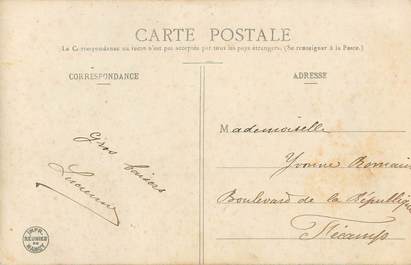 CARTE POSTALE
(La Correspondance au recto n'est pas acceptée par tous les pays étrangers. (Se renseigner à la Poste.)
CORRESPONDANCE
ADRESSE
Gros baisers
Lucienne
Mademoiselle
Yvonne Romain
Boulevard de la République
Fécamp
IMPR.
RÉUNIES
DE
NANCY